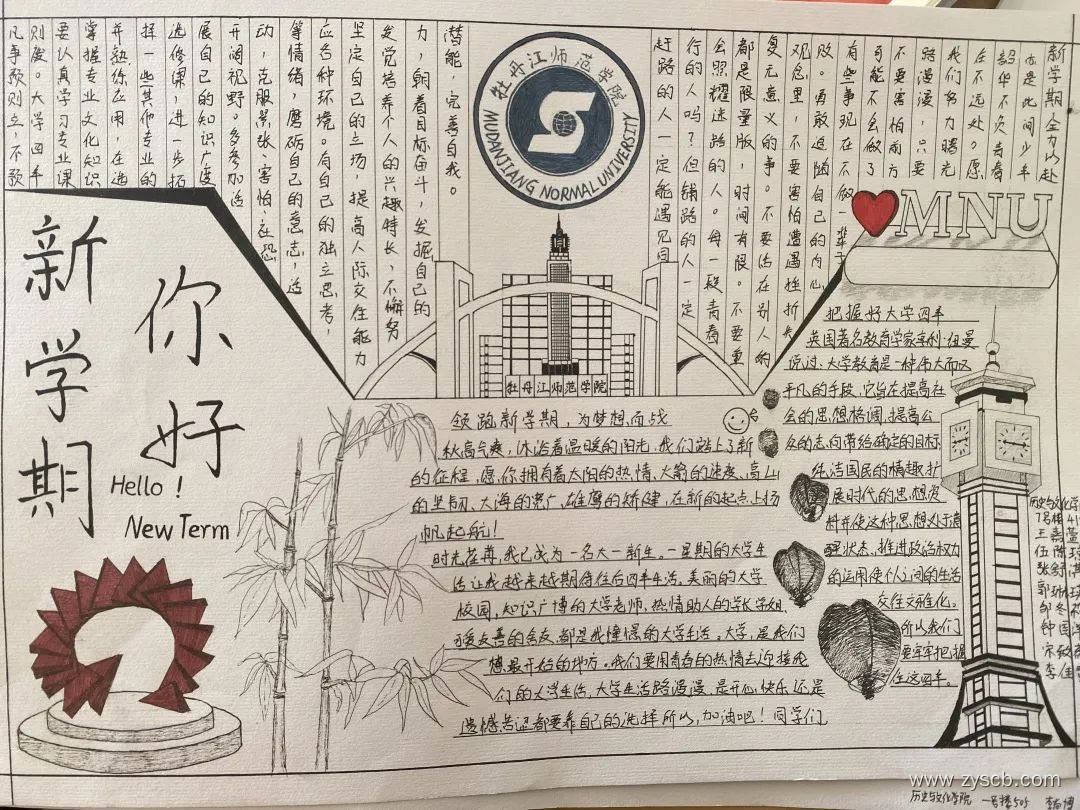 新学期
你好
Hello !
New Term
牡丹江师范学院
MUDANJIANG NORMAL UNIVERSITY
牡丹江师范学院
MNU
新学期全力以赴
也是此间少年
韶华不负青春
在不远处。愿
我们努力曙光
路漫漫,只要
不要害怕雨
可能不会做了
有些事现在不做一辈子
败。勇敢追随自己的内心
观念里,不要害怕遭遇挫折失
复无意义的事。不要活在别人的
都是限量版,时间有限。不要重
会照耀迷路的人。每一段青春
行的人吗?但铺路的人一定
赶路的人一定能遇见同
潜能,完善自我。
力,朝着目标奋斗,发掘自己的
发觉培养个人的兴趣特长,不懈努
坚定自己的立场,提高人际交往能力
应各种环境。有自己的独立思考,
等情绪,磨砺自己的意志,适
动,克服紧张、害怕、恐
开阔视野。多参加活
展自己的知识广度
选修课,进一步拓
择一些其他专业的
并熟练应用,在选
掌握专业文化知识
要认真学习专业课
则废。大学四年
凡事预则立,不预
领跑新学期,为梦想而战
秋高气爽,沐浴着温暖的阳光,我们踏上了新
的征程,愿你拥有着太阳的热情、火箭的速度、高山
的坚韧、大海的宽广、雄鹰的矫健,在新的起点上扬
帆起航!
时光荏苒,我已成为一名大一新生。一星期的大学生
活让我越来越期待往后四年生活。美丽的大学
校园、知识广博的大学老师,热情助人的学长学姐、
可爱友善的舍友,都是我憧憬的大学生活。大学,是我们
梦想最开始的地方。我们要用青春的热情去迎接我
们的大学生活,大学生活路漫漫,是开心快乐还是
遗憾苦涩都要靠自己的选择所以,加油吧!同学们
把握好大学四年
英国著名教育学家亨利·纽曼
说过:大学教育是一种伟大而又
平凡的手段,它旨在提高社
会的思想格调,提高公
众的志向带给确定的目标
纯洁国民的情趣扩
展时代的思想资
料并使这种思想处于清
醒状态,推进政治权力
的运用使个人间的生活
交往文雅化。
所以我们
要牢牢把握
住这四年。
历史与文化学院
王嘉萱
伍
张
郭
邹冬
钟国
宋
李佳
历史与文化学院 一号楼505
www.zyscb.com